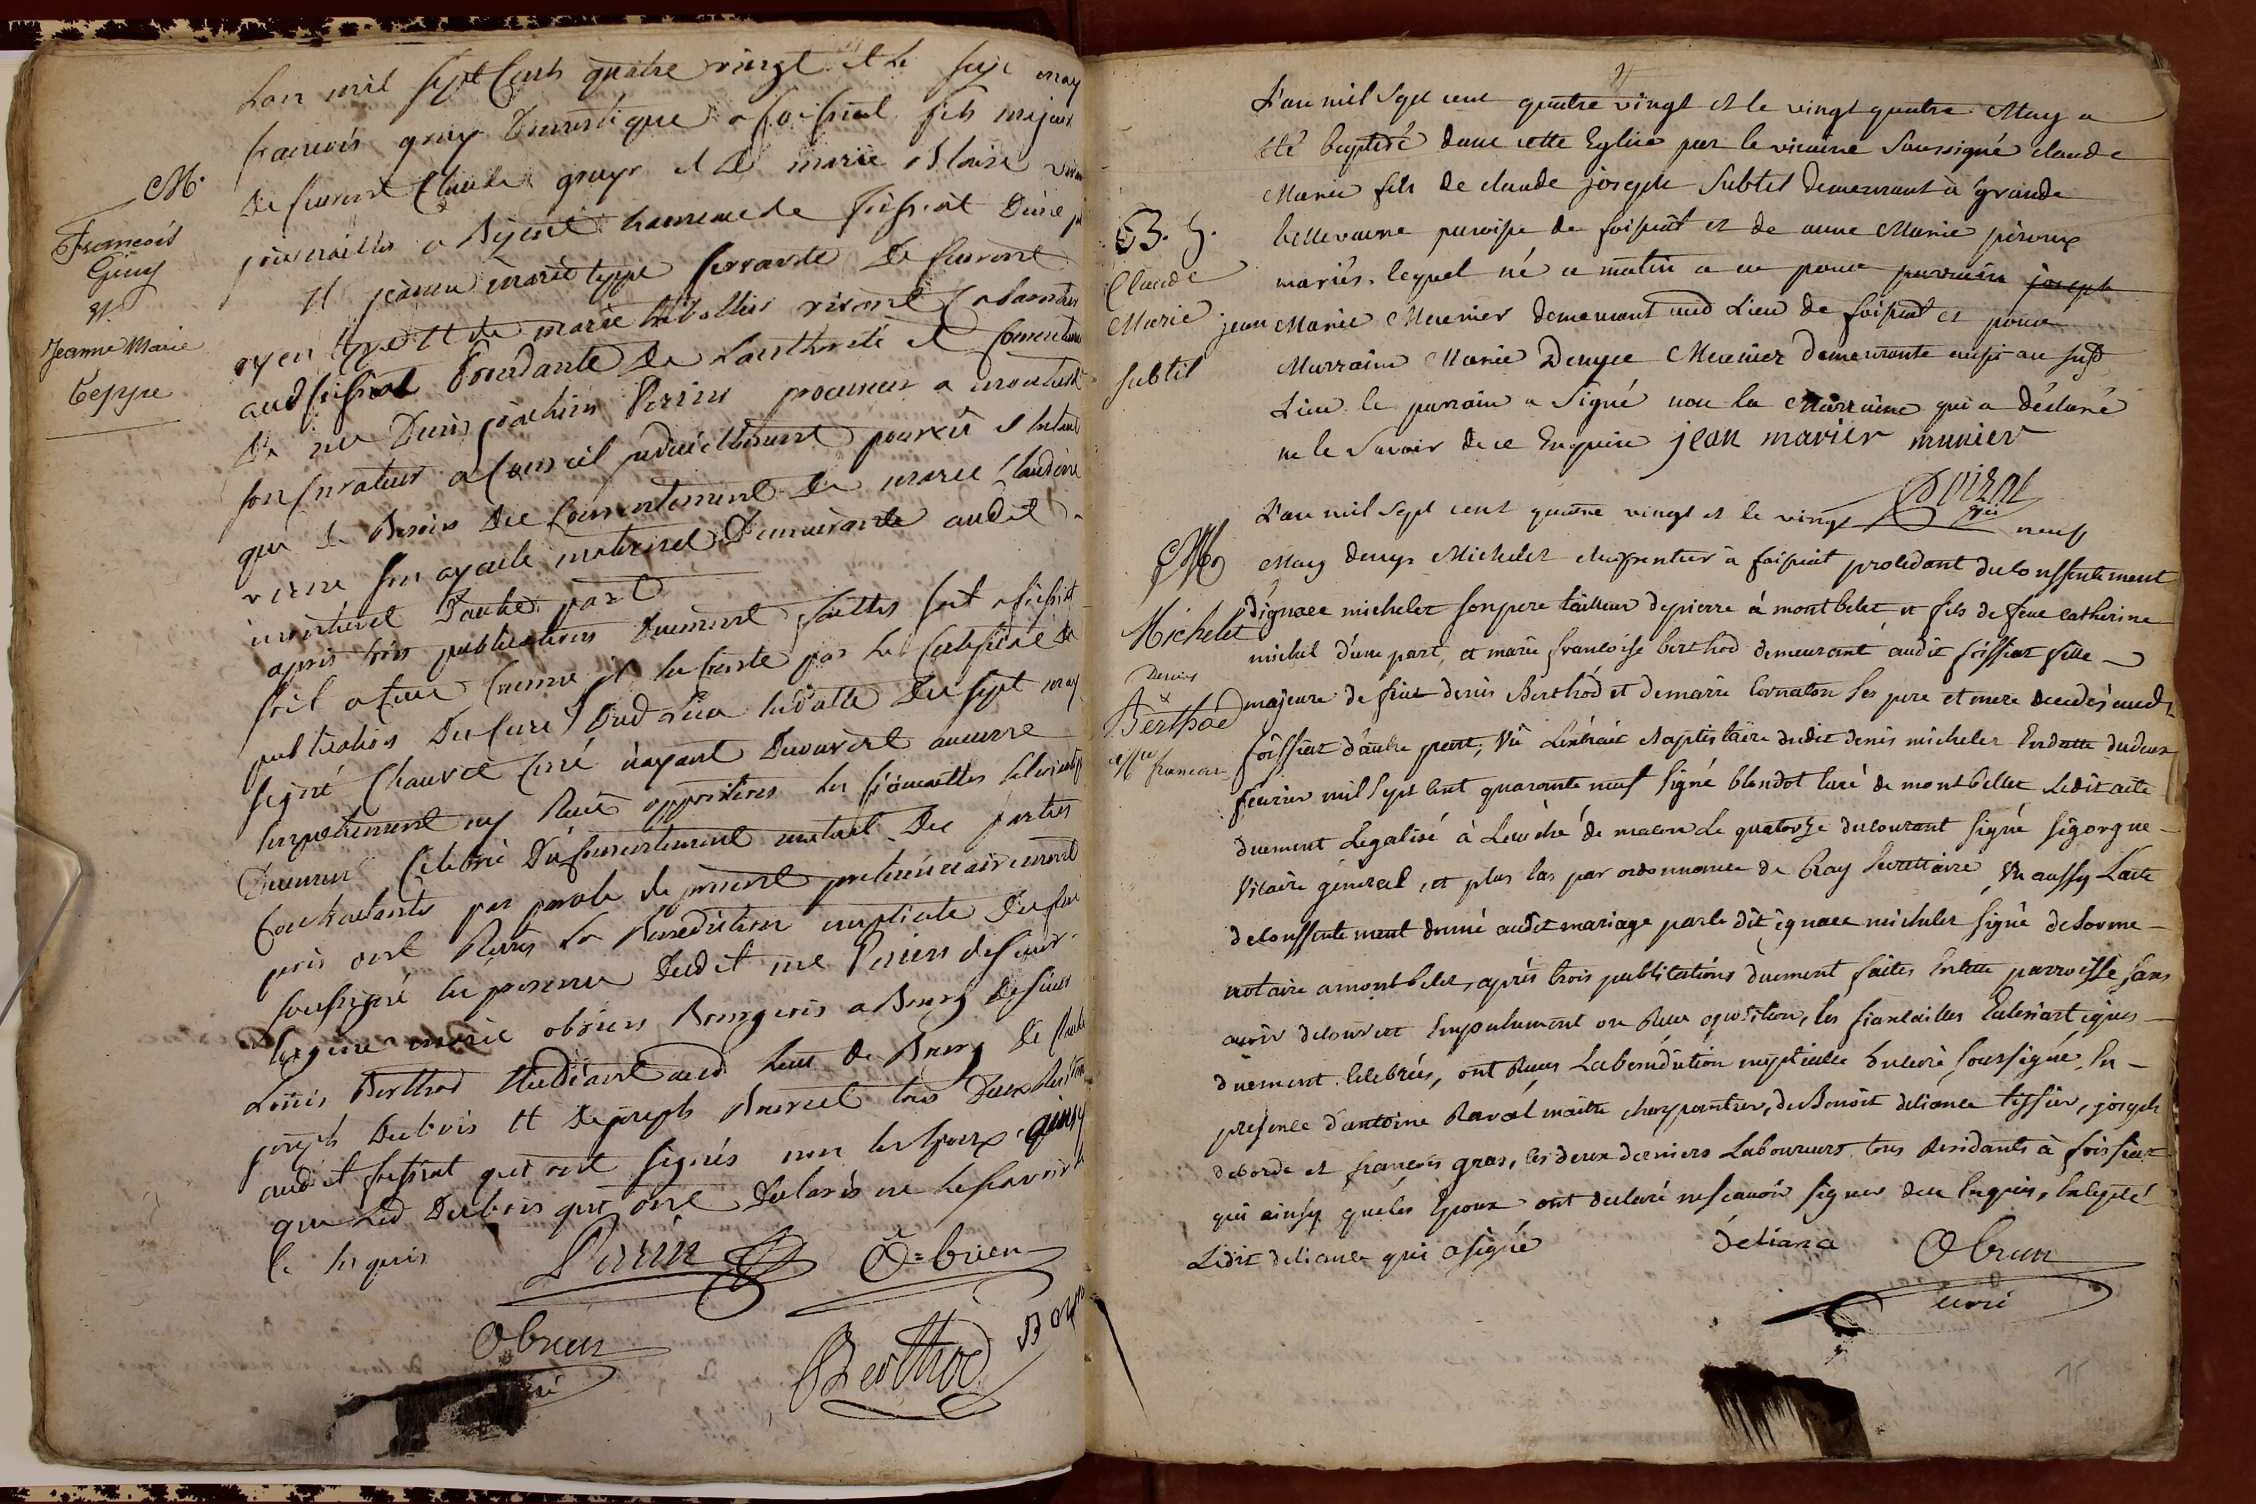 M.
François
Gruy
et
Jeanne Marie
Teppe
Lan mil sept Cents quatre vingt et le seize may
francois gruyr Domestique a foissiat fils majeur
De feurent Claude gruyr et de marie Blaise
journailles a hameau de foissiat D'une
Et jeanne marie teppe servante De feurent
teppe et de marie vivant
audfoissiat De Lauthorité et
De me Denis joachim Perrin procureur a montrevel
son Curateur a Conseil judiciellement pourvû
que de Besoin Du Consentement De marie Claudine
son ayeule maternel Demeurante audit
montrevel D'autre part
apres trois publications Duement faittes soit a foissiat
soit a comme il en Conste par le Certificat de
publication Du Curé Dud Lieu en datte Du sept may
signé Chauvet Curé n'ayant Decouvert aucune
empechement ny Reçu opposition les fiancailles
Duement Celebré Du Consentement mutuel Des parties
Contractants par parole de present
pris ont Reçus La Benediction nuptiale Du curé
soussigné en presence Dudit me Perrin de sieur
marie obrien Bourgeois a Bourg de sieur
Louis Berthod Etudiant aud lieu de Bourg De Claude
joseph Dubois et De joseph Bourcet tous Deux
audit foissiat qui ont signés non les Epoux ainsy
que Led Dubois qui ont Declarés ne le scavoir
de ce Enquis
Perrin
O=brien
Obrien
curé
Berthod
B. S.
Claude
Marie
subtil
L'an mil sept cent quatre vingt et le vingt quatre May a
été baptisé dans cette Eglise par le vicaire soussigné claude
Marie fils de claude joseph subtil demeurant à grande
bellevavre paroisse de foissiat et de anne Marie
mariés. lequel né ce matin a eu pour parrain joseph
jean Marie Meunier demeurant aud Lieu de foissiat et pour
Marraine Marie Denyse Meunier demeurante aussi au susd
Lieu le parrain a signé non la Marraine qui a déclaré
ne le savoir de ce Enquise jean marier munier
Doirat
vic
M.
Michelet
Denis
&
Berthod
francoise
L'an mil sept cent quatre vingt et le vingt neuf
May denys Michelet charpentier à foissiat procédant du consentement
d'ignace michelet son pere tailleur de pierre à montbelet et fils de feue catherine
michel d'une part, et marie francoise berthod demeurant audit foissiat fille
majeure de feux denis Berthod et de marie Cornaton ses pere et mere decedés audt
foissiat d'autre part, Vû L'extrait Baptistaire dudit denis michelet En datte du deux
fevrier mil sept cent quarante neuf signé blondot curé de montbellet Ledit acte
duement Legalisé à Leveché de macon Le quatorze du courant signé sigorgne
Vicaire géneral, et plus bas par ordonnance de Ray Secretaire, Vu aussy Lacte
de consentement donné audit mariage par le dit ignace michelet signé delorme
notaire a montbelet, après trois publications duement faites En cette parroisse sans
avoir decouvert Empechement ou Reçu oposition, les fiancailles Ecclesiastiques
duement celebrées, ont Reçus La benediction nuptiale du curé soussigné. En
presence d'antoine Raval maitre charpentier, de Benoit deliance tissier, joseph
deborde et francois gras, les deux derniers Laboureurs tous Residants à foissiat
qui ainsy que les Epoux ont declaré ne scavoir signer de ce Enquis, Excepté
Ledit deliance qui a signé
deliance
Obrien
curé